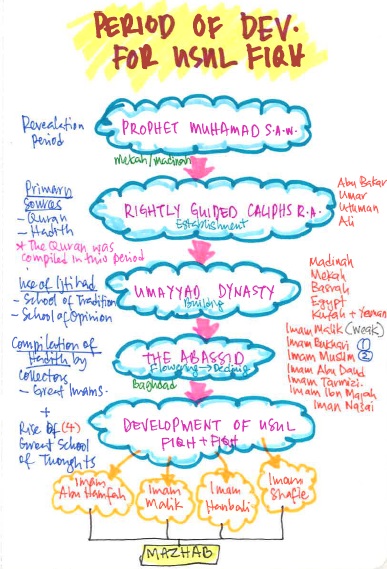 PERIOD OF DEV.
FOR USUL FIQH
Revealation
Period
PROPHET MUHAMAD S.A.W.
mekah/madinah
Primary
Sources
- Quran
- Hadith
* The Quran was
compiled in this period
RIGHTLY GUIDED CALIPHS R.A.
Establishment
Abu Bakar
Umar
Uthman
Ali
Use of Ijtihad
- School of Tradition
- School of Opinion
UMAYYAD DYNASTY
Building
Madinah
Mekah
Basrah
Egypt
Kufah + Yeman
Compilation of
Hadith by
collectors
- Great Imams
THE ABASSID
Flowering → Decling
Baghdad
Imam Malik (weak)
Imam Bukhari ①
Imam Muslim ②
Imam Abu Daud
Imam Tarmizi
Imam Ibn Majah
Iman Nasai
+
Rise of (4)
Great School
of Thoughts
DEVELOPMENT OF USUL
FIQH + FIQH
Imam
Abu Hanifah
Imam
Malik
Imam
Hanbali
Imam
Shafie
MAZHAB